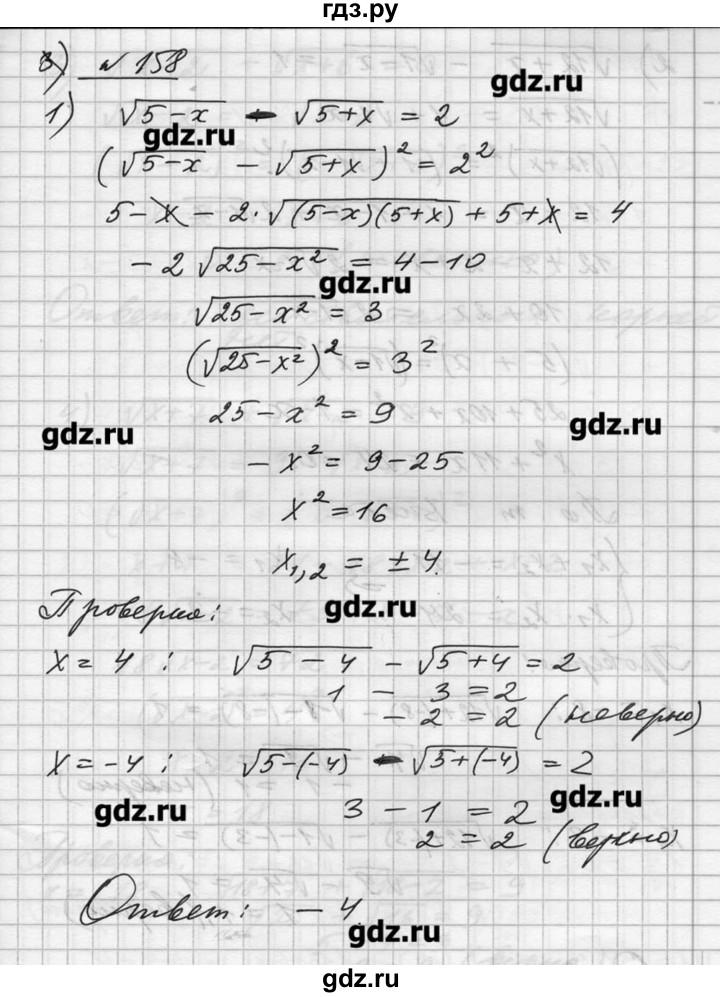 гдз.ру
3) №158
gdz.ru
1) √(5-x) - √(5+x) = 2
gdz.ru
(√(5-x) - √(5+x))² = 2²
5-x - 2·√((5-x)(5+x)) + 5+x = 4
-2√(25-x²) = 4-10
gdz.ru
√(25-x²) = 3
(√(25-x²))² = 3²
25-x² = 9
gdz.ru
gdz.ru
-x² = 9-25
x² = 16
x₁,₂ = ±4.
Проверка:
gdz.ru
x = 4: √(5-4) - √(5+4) = 2
1 - 3 = 2
-2 = 2 (неверно)
x = -4: √(5-(-4)) - √(5+(-4)) = 2
gdz.ru
gdz.ru
3 - 1 = 2
2 = 2 (верно)
Ответ: -4
gdz.ru
gdz.ru